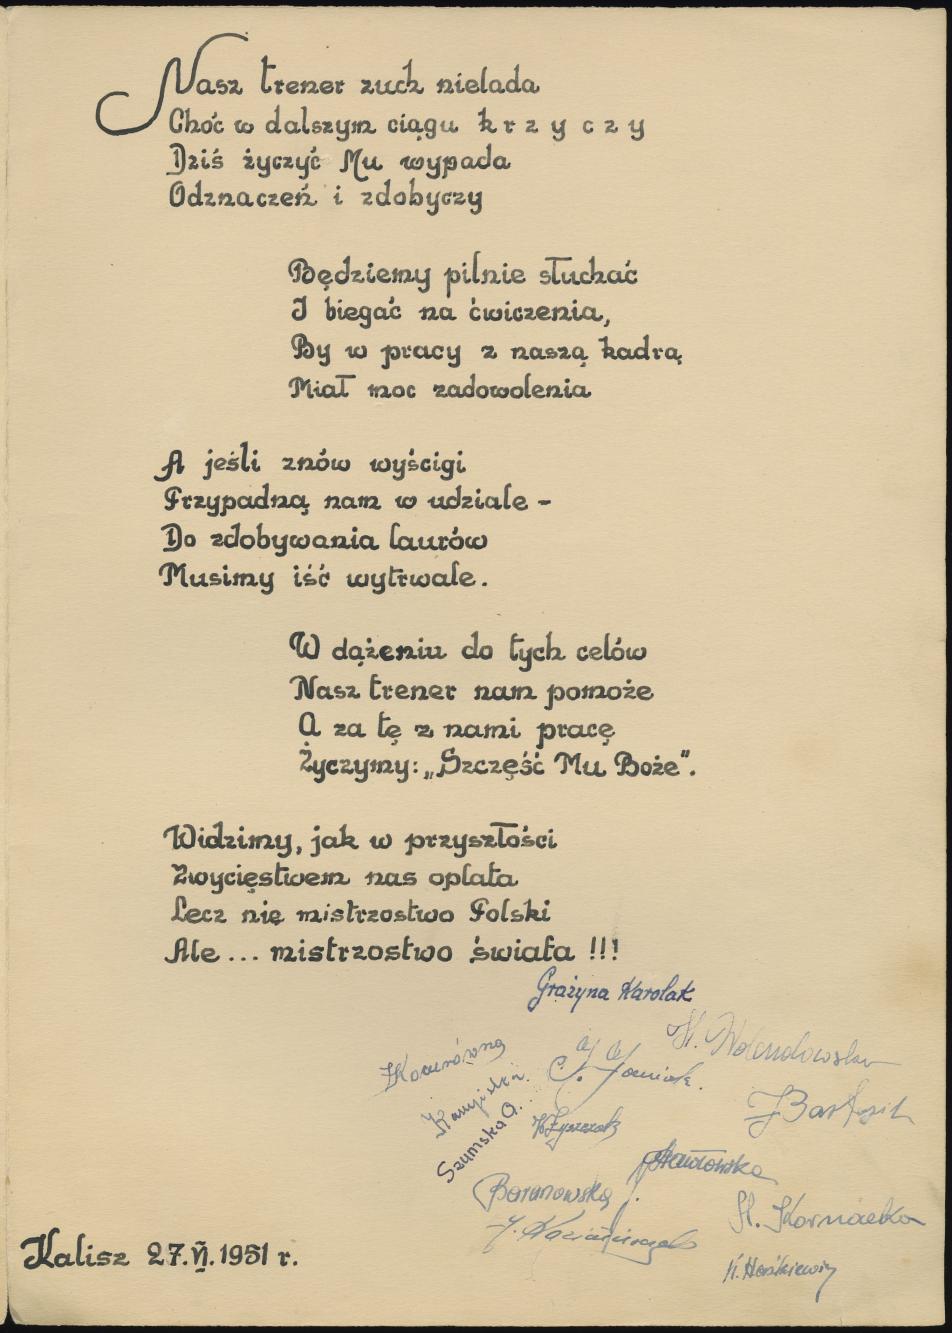 Nasz trener zuch nielada
Choć w dalszym ciągu krzyczy
Dziś życzyć Mu wypada
Odznaczeń i zdobyczy
Będziemy pilnie słuchać
I biegać na ćwiczenia,
By w pracy z naszą kadrą
Miał moc zadowolenia
A jeśli znów wyścigi
Przypadną nam w udziale -
Do zdobywania laurów
Musimy iść wytrwale.
W dążeniu do tych celów
Nasz trener nam pomoże
A za tę z nami pracę
Życzymy: „Szczęść Mu Boże".
Widzimy, jak w przyszłości
Zwycięstwem nas oplata
Lecz nię mistrzostwo Polski
Ale ... mistrzostwo świata !!!
Grażyna Karolak
Szumska
Baranowska
Kalisz 27.VI.1951 r.